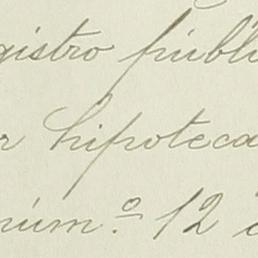 gistro públi
r hipoteca
núm.º 12 d